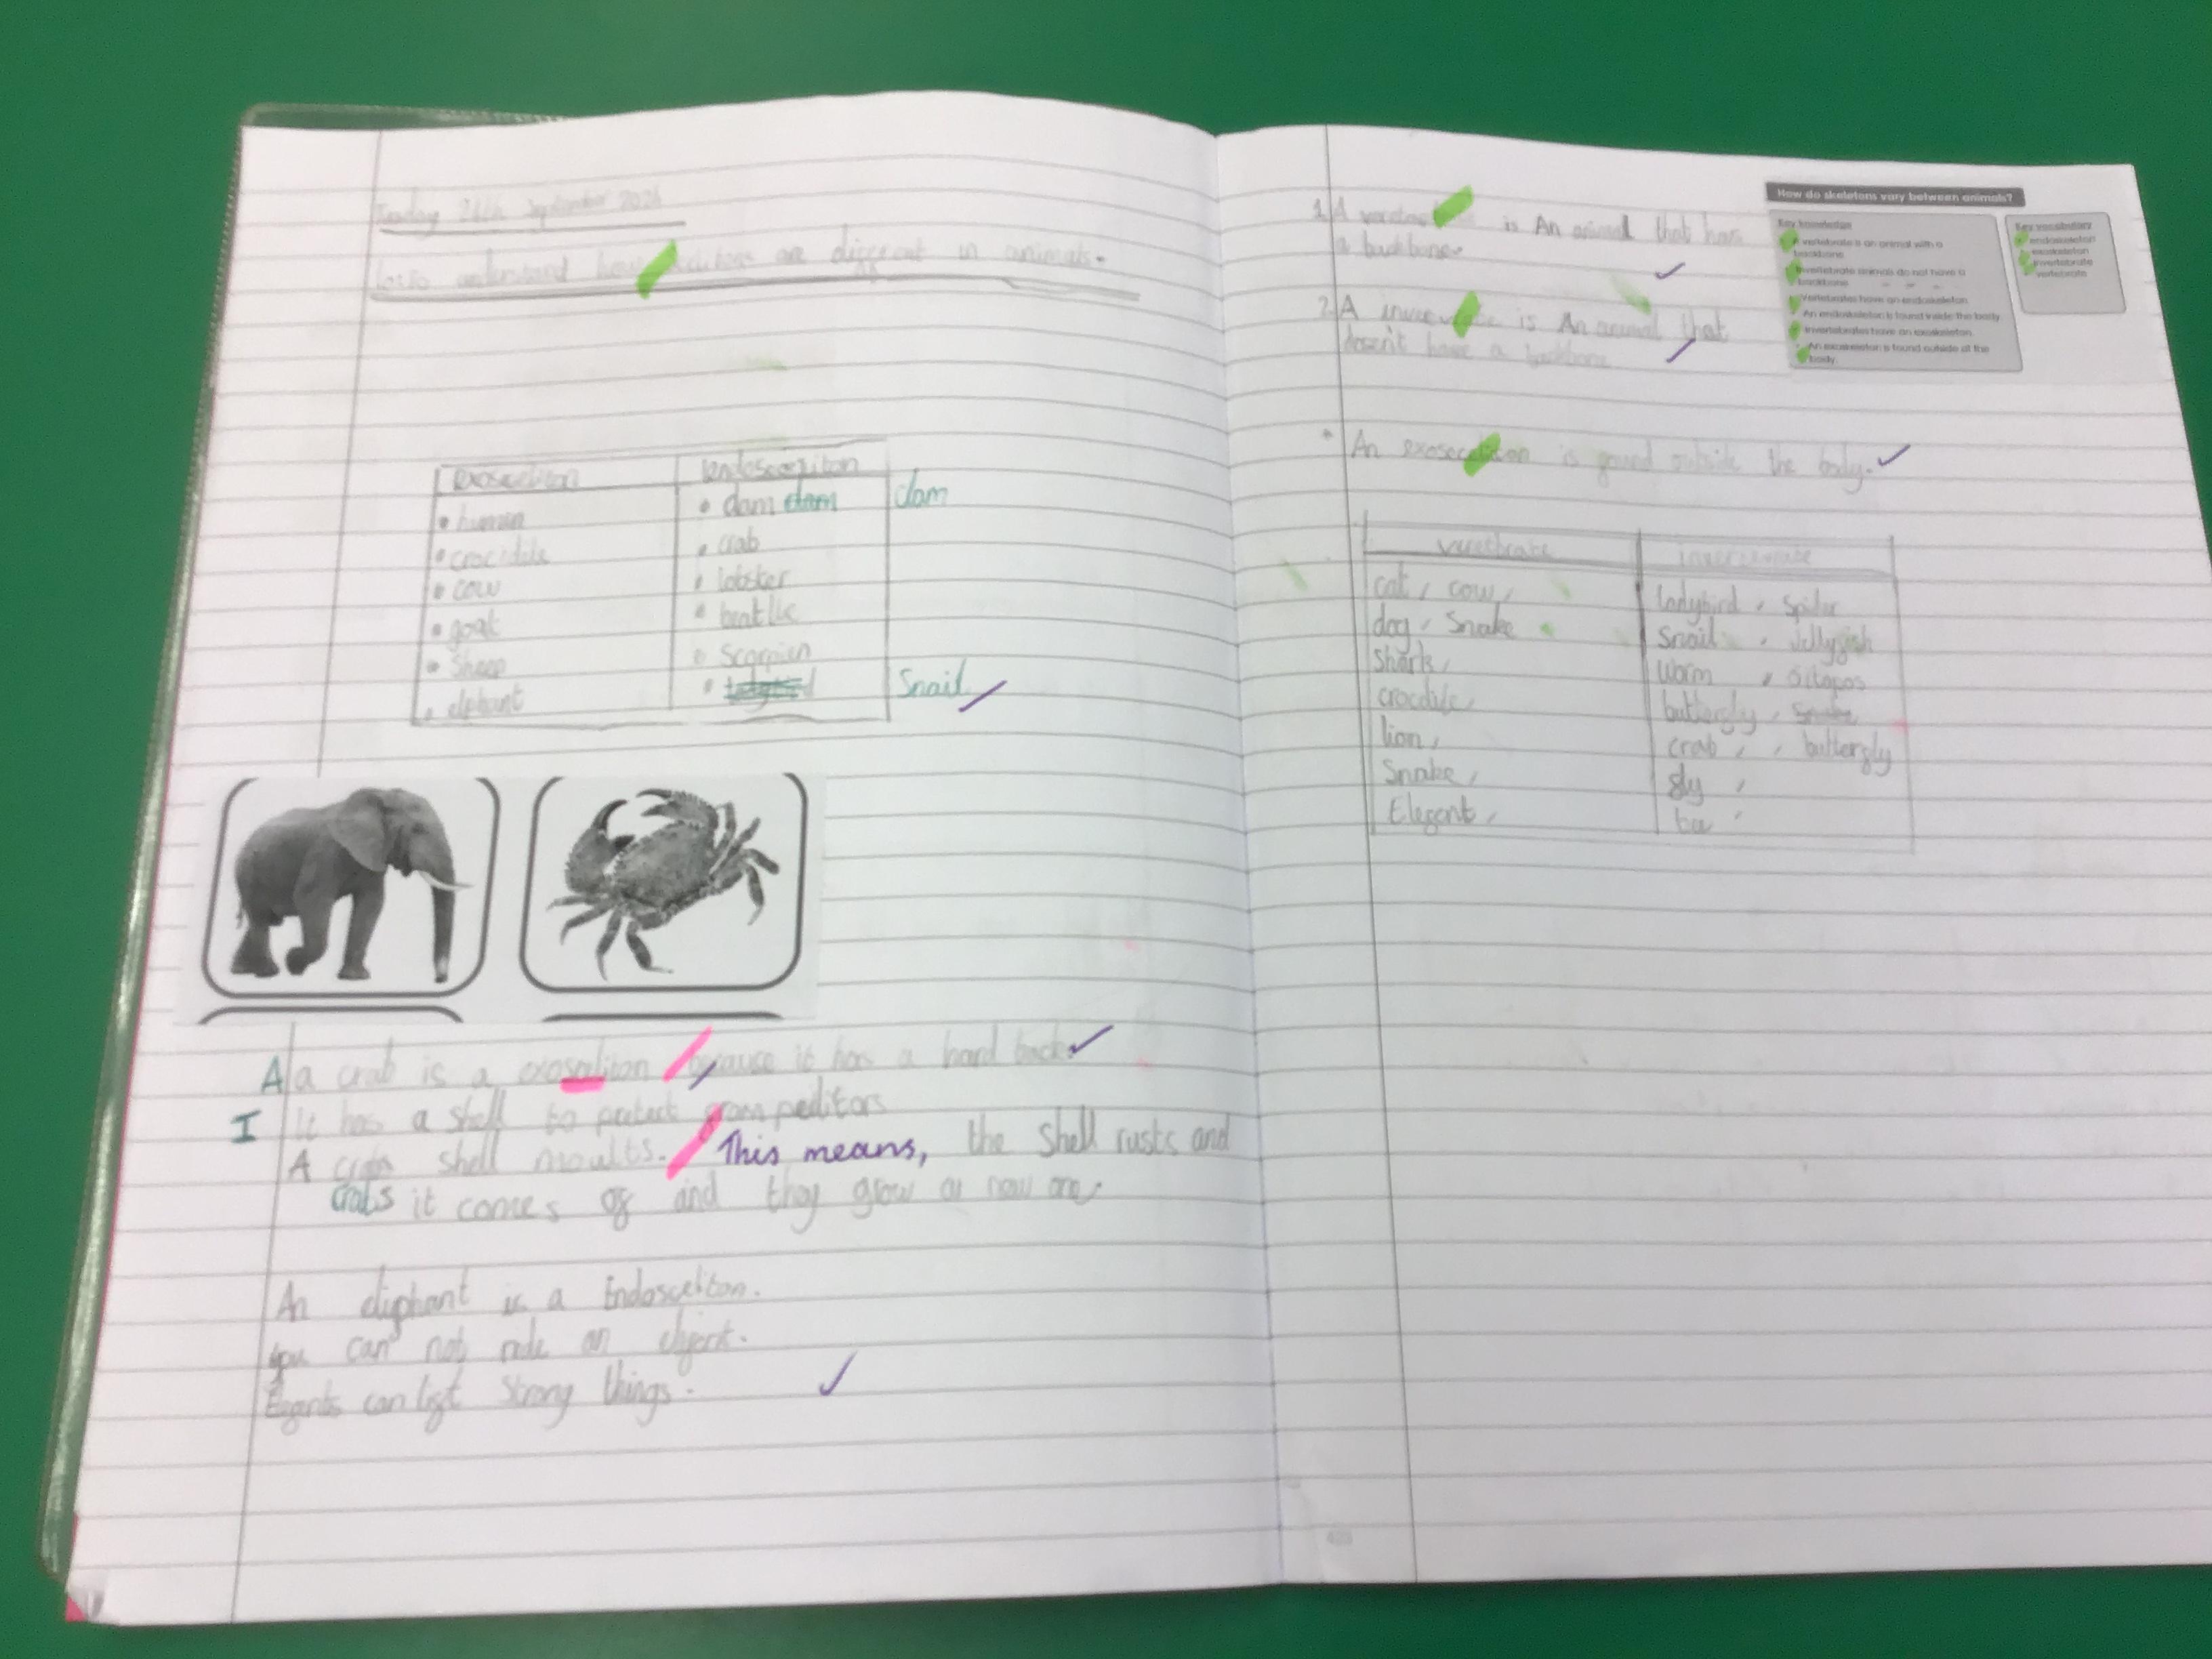 September
understand are different in animals.
exoscelition
endosceliton
• human
• clam clam
clam
• crocidile
• crab
• cow
• lobster
• goat
• beatlle
• sheep
• scorpion
• elephant
Snail
A a crab is a exoscelition because it has a hard back
I It has a shell to protect from peditors
A crab shell moults. This means, the shell rusts and
crabs it comes of and they grow a new one.
An eliphant is a Endosceliton.
you can not ride an
can lift strong things.
1. A is An animal that has
a backbone.
2. A is An animal that
doesn't have a backbone
• An is found outside the body.
cat, cow,
ladybird, Spider
dog, Snake
Snail, Jellyfish
Shark,
worm, octopos
crocdile,
butterfly,
lion,
crab, , butterfly
Snake,
fly,
How do skeletons vary between animals?
Key knowledge
A vertebrate is an animal with a
backbone.
Invertebrate animals do not have a
backbone.
Vertebrates have an endoskeleton.
An endoskeleton is found inside the body.
Invertebrates have an exoskeleton.
An exoskeleton is found outside of the
body.
Key vocabulary
endoskeleton
exoskeleton
invertebrate
vertebrate